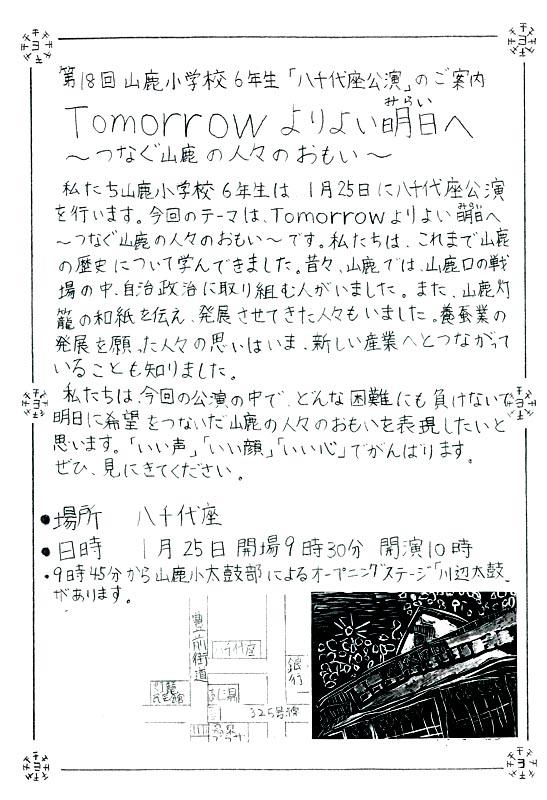 第18回 山鹿小学校 6年生「八千代座公演」のご案内
Tomorrow よりよい明日へ
みらい
～つなぐ山鹿の人々のおもい～
私たち山鹿小学校 6年生は、1月25日に八千代座公演
を行います。今回のテーマは、Tomorrow よりよい明日へ
みらい
～つなぐ山鹿の人々のおもい～です。私たちは、これまで山鹿
の歴史について学んできました。昔々、山鹿では、山鹿口の戦
場の中、自治政治に取り組む人がいました。また、山鹿灯
籠の和紙を伝え、発展させてきた人々もいました。養蚕業の
発展を願った人々の思いはいま、新しい産業へとつながって
いることも知りました。
私たちは、今回の公演の中で、どんな困難にも負けないで
明日に希望をつないだ山鹿の人々のおもいを表現したいと
思います。「いい声」「いい顔」「いい心」でがんばります。
ぜひ、見にきてください。
●場所 八千代座
●日時 1月25日 開場9時30分 開演10時
・9時45分から山鹿小太鼓部によるオープニングステージ「川辺太鼓」
があります。
豊前街道
八千代座
銀行
灯籠
民芸館
さくら湯
325号線
温泉
プラザ